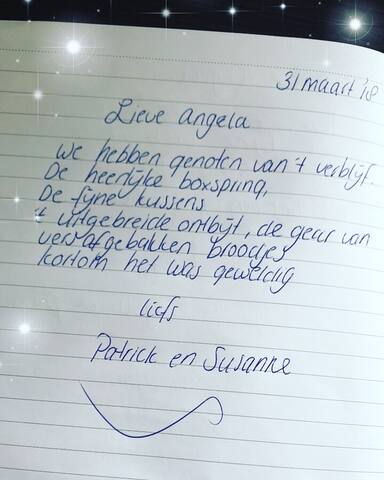 31 maart '18
Lieve Angela
We hebben genoten van 't verblijf.
De heerlijke boxspring,
De fijne kussens
't uitgebreide ontbijt, de geur van
versafgebakken broodjes
kortom het was geweldig
liefs
Patrick en Susanne